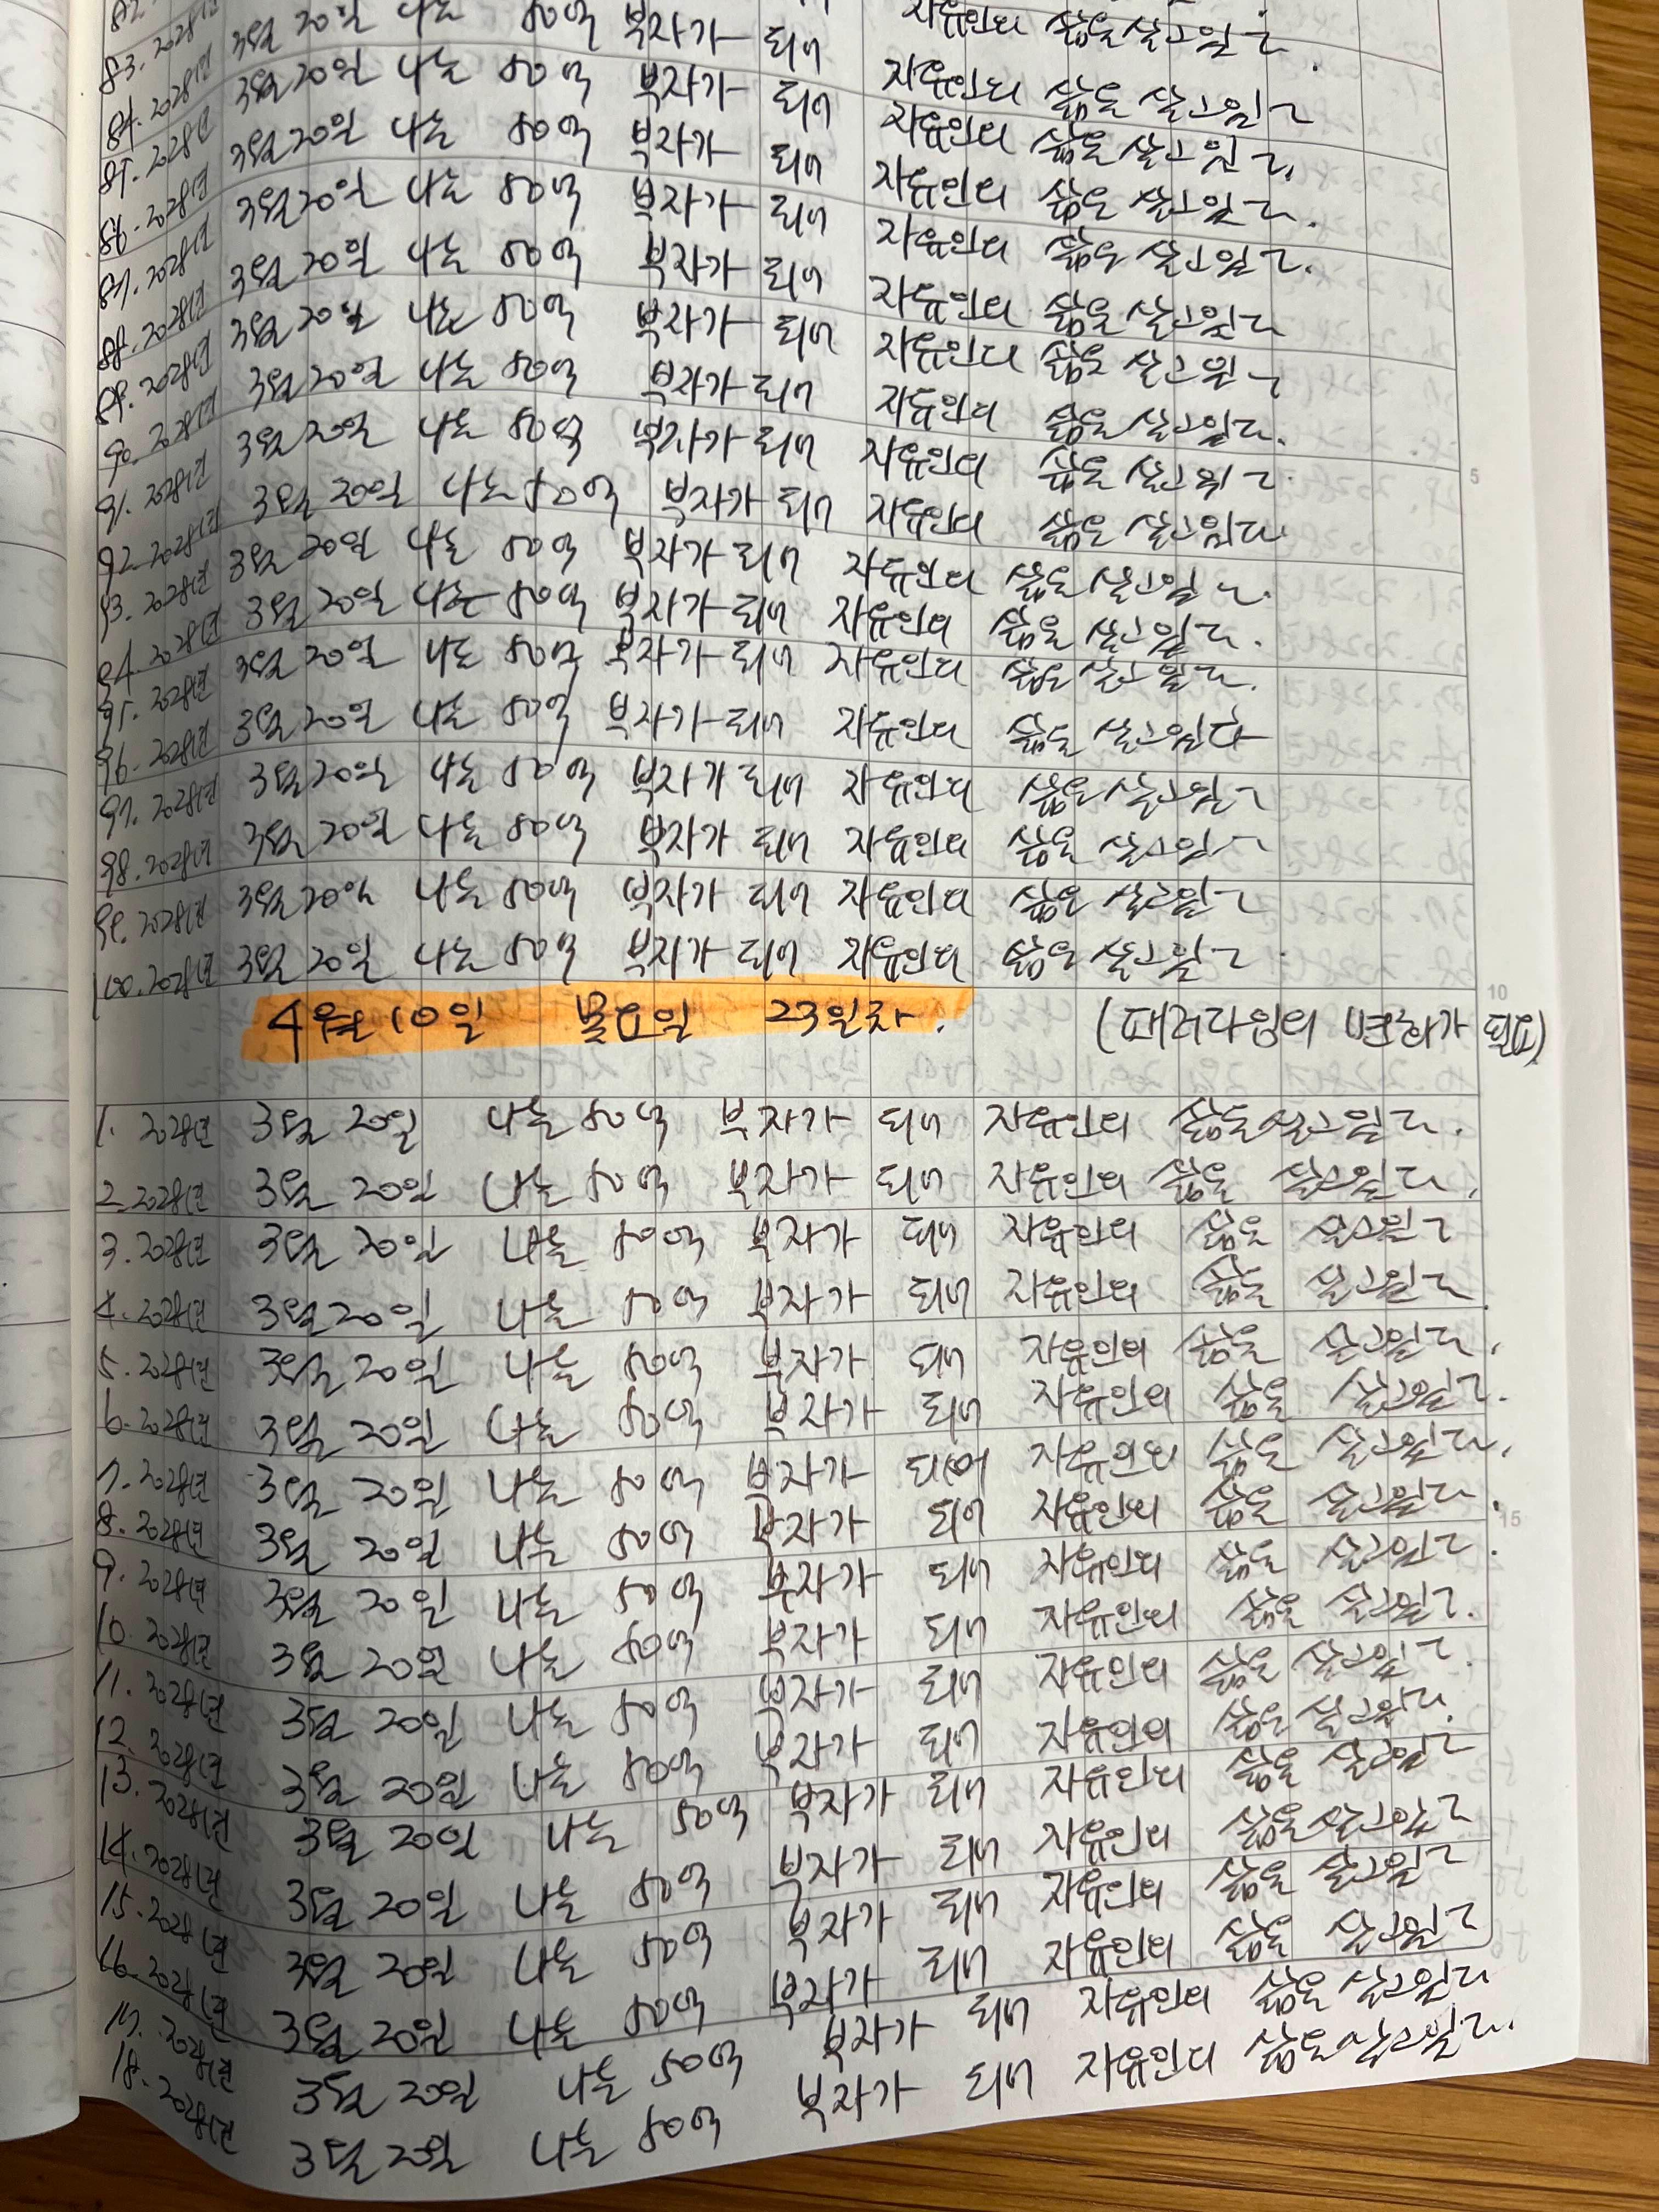 83. 2028년 3월 20일 나는 50억 부자가 되어 자유인의 삶을 살고있다.
84. 2028년 3월 20일 나는 50억 부자가 되어 자유인의 삶을 살고있다
85. 2028년 3월 20일 나는 50억 부자가 되어 자유인의 삶을 살고있다.
86. 2028년 3월 20일 나는 50억 부자가 되어 자유인의 삶을 살고있다.
87. 2028년 3월 20일 나는 50억 부자가 되어 자유인의 삶을 살고있다.
88. 2028년 3월 20일 나는 50억 부자가 되어 자유인의 삶을 살고있다
89. 2028년 3월 20일 나는 50억 부자가 되어 자유인의 삶을 살고있다
90. 2028년 3월 20일 나는 50억 부자가 되어 자유인의 삶을 살고있다.
91. 2028년 3월 20일 나는 50억 부자가 되어 자유인의 삶을 살고있다.
92. 2028년 3월 20일 나는 50억 부자가 되어 자유인의 삶을 살고있다.
93. 2028년 3월 20일 나는 50억 부자가 되어 자유인의 삶을 살고있다.
94. 2028년 3월 20일 나는 50억 부자가 되어 자유인의 삶을 살고있다.
95. 2028년 3월 20일 나는 50억 부자가 되어 자유인의 삶을 살고있다.
96. 2028년 3월 20일 나는 50억 부자가 되어 자유인의 삶을 살고있다
97. 2028년 3월 20일 나는 50억 부자가 되어 자유인의 삶을 살고있다
98. 2028년 3월 20일 나는 50억 부자가 되어 자유인의 삶을 살고있다
99. 2028년 3월 20일 나는 50억 부자가 되어 자유인의 삶을 살고있다
100. 2028년 3월 20일 나는 50억 부자가 되어 자유인의 삶을 살고있다
4월 10일 목요일 23일차. (패러다임의 변화가 필요)
1. 2028년 3월 20일 나는 50억 부자가 되어 자유인의 삶을 살고있다.
2. 2028년 3월 20일 나는 50억 부자가 되어 자유인의 삶을 살고있다.
3. 2028년 3월 20일 나는 50억 부자가 되어 자유인의 삶을 살고있다
4. 2028년 3월 20일 나는 50억 부자가 되어 자유인의 삶을 살고있다
5. 2028년 3월 20일 나는 50억 부자가 되어 자유인의 삶을 살고있다.
6. 2028년 3월 20일 나는 50억 부자가 되어 자유인의 삶을 살고있다.
7. 2028년 3월 20일 나는 50억 부자가 되어 자유인의 삶을 살고있다.
8. 2028년 3월 20일 나는 50억 부자가 되어 자유인의 삶을 살고있다.
9. 2028년 3월 20일 나는 50억 부자가 되어 자유인의 삶을 살고있다.
10. 2028년 3월 20일 나는 50억 부자가 되어 자유인의 삶을 살고있다.
11. 2028년 3월 20일 나는 50억 부자가 되어 자유인의 삶을 살고있다.
12. 2028년 3월 20일 나는 50억 부자가 되어 자유인의 삶을 살고있다.
13. 2028년 3월 20일 나는 50억 부자가 되어 자유인의 삶을 살고있다
14. 2028년 3월 20일 나는 50억 부자가 되어 자유인의 삶을 살고있다
15. 2028년 3월 20일 나는 50억 부자가 되어 자유인의 삶을 살고있다
16. 2028년 3월 20일 나는 50억 부자가 되어 자유인의 삶을 살고있다
17. 2028년 3월 20일 나는 50억 부자가 되어 자유인의 삶을 살고있다
18. 2028년 3월 20일 나는 50억 부자가 되어 자유인의 삶을 살고있다.
5
10
15